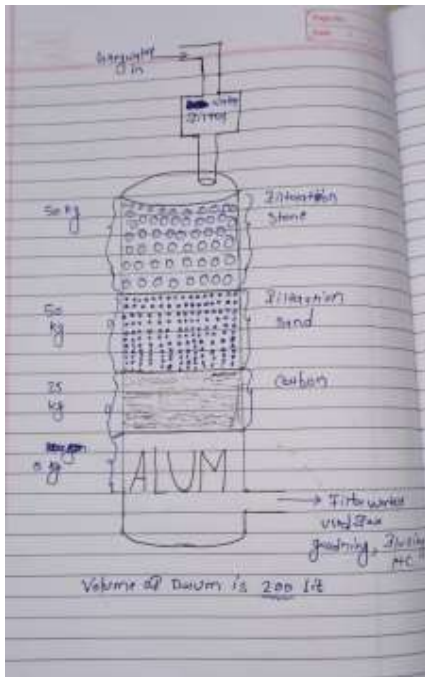 Greywater
in
water
Filter
50 kg
Filtration
Stone
50
kg
Filtration
Sand
25
kg
Carbon
kg
ALUM
Filter water
used for
gardning, Flusing
etc
Volume of Drum is 200 lit